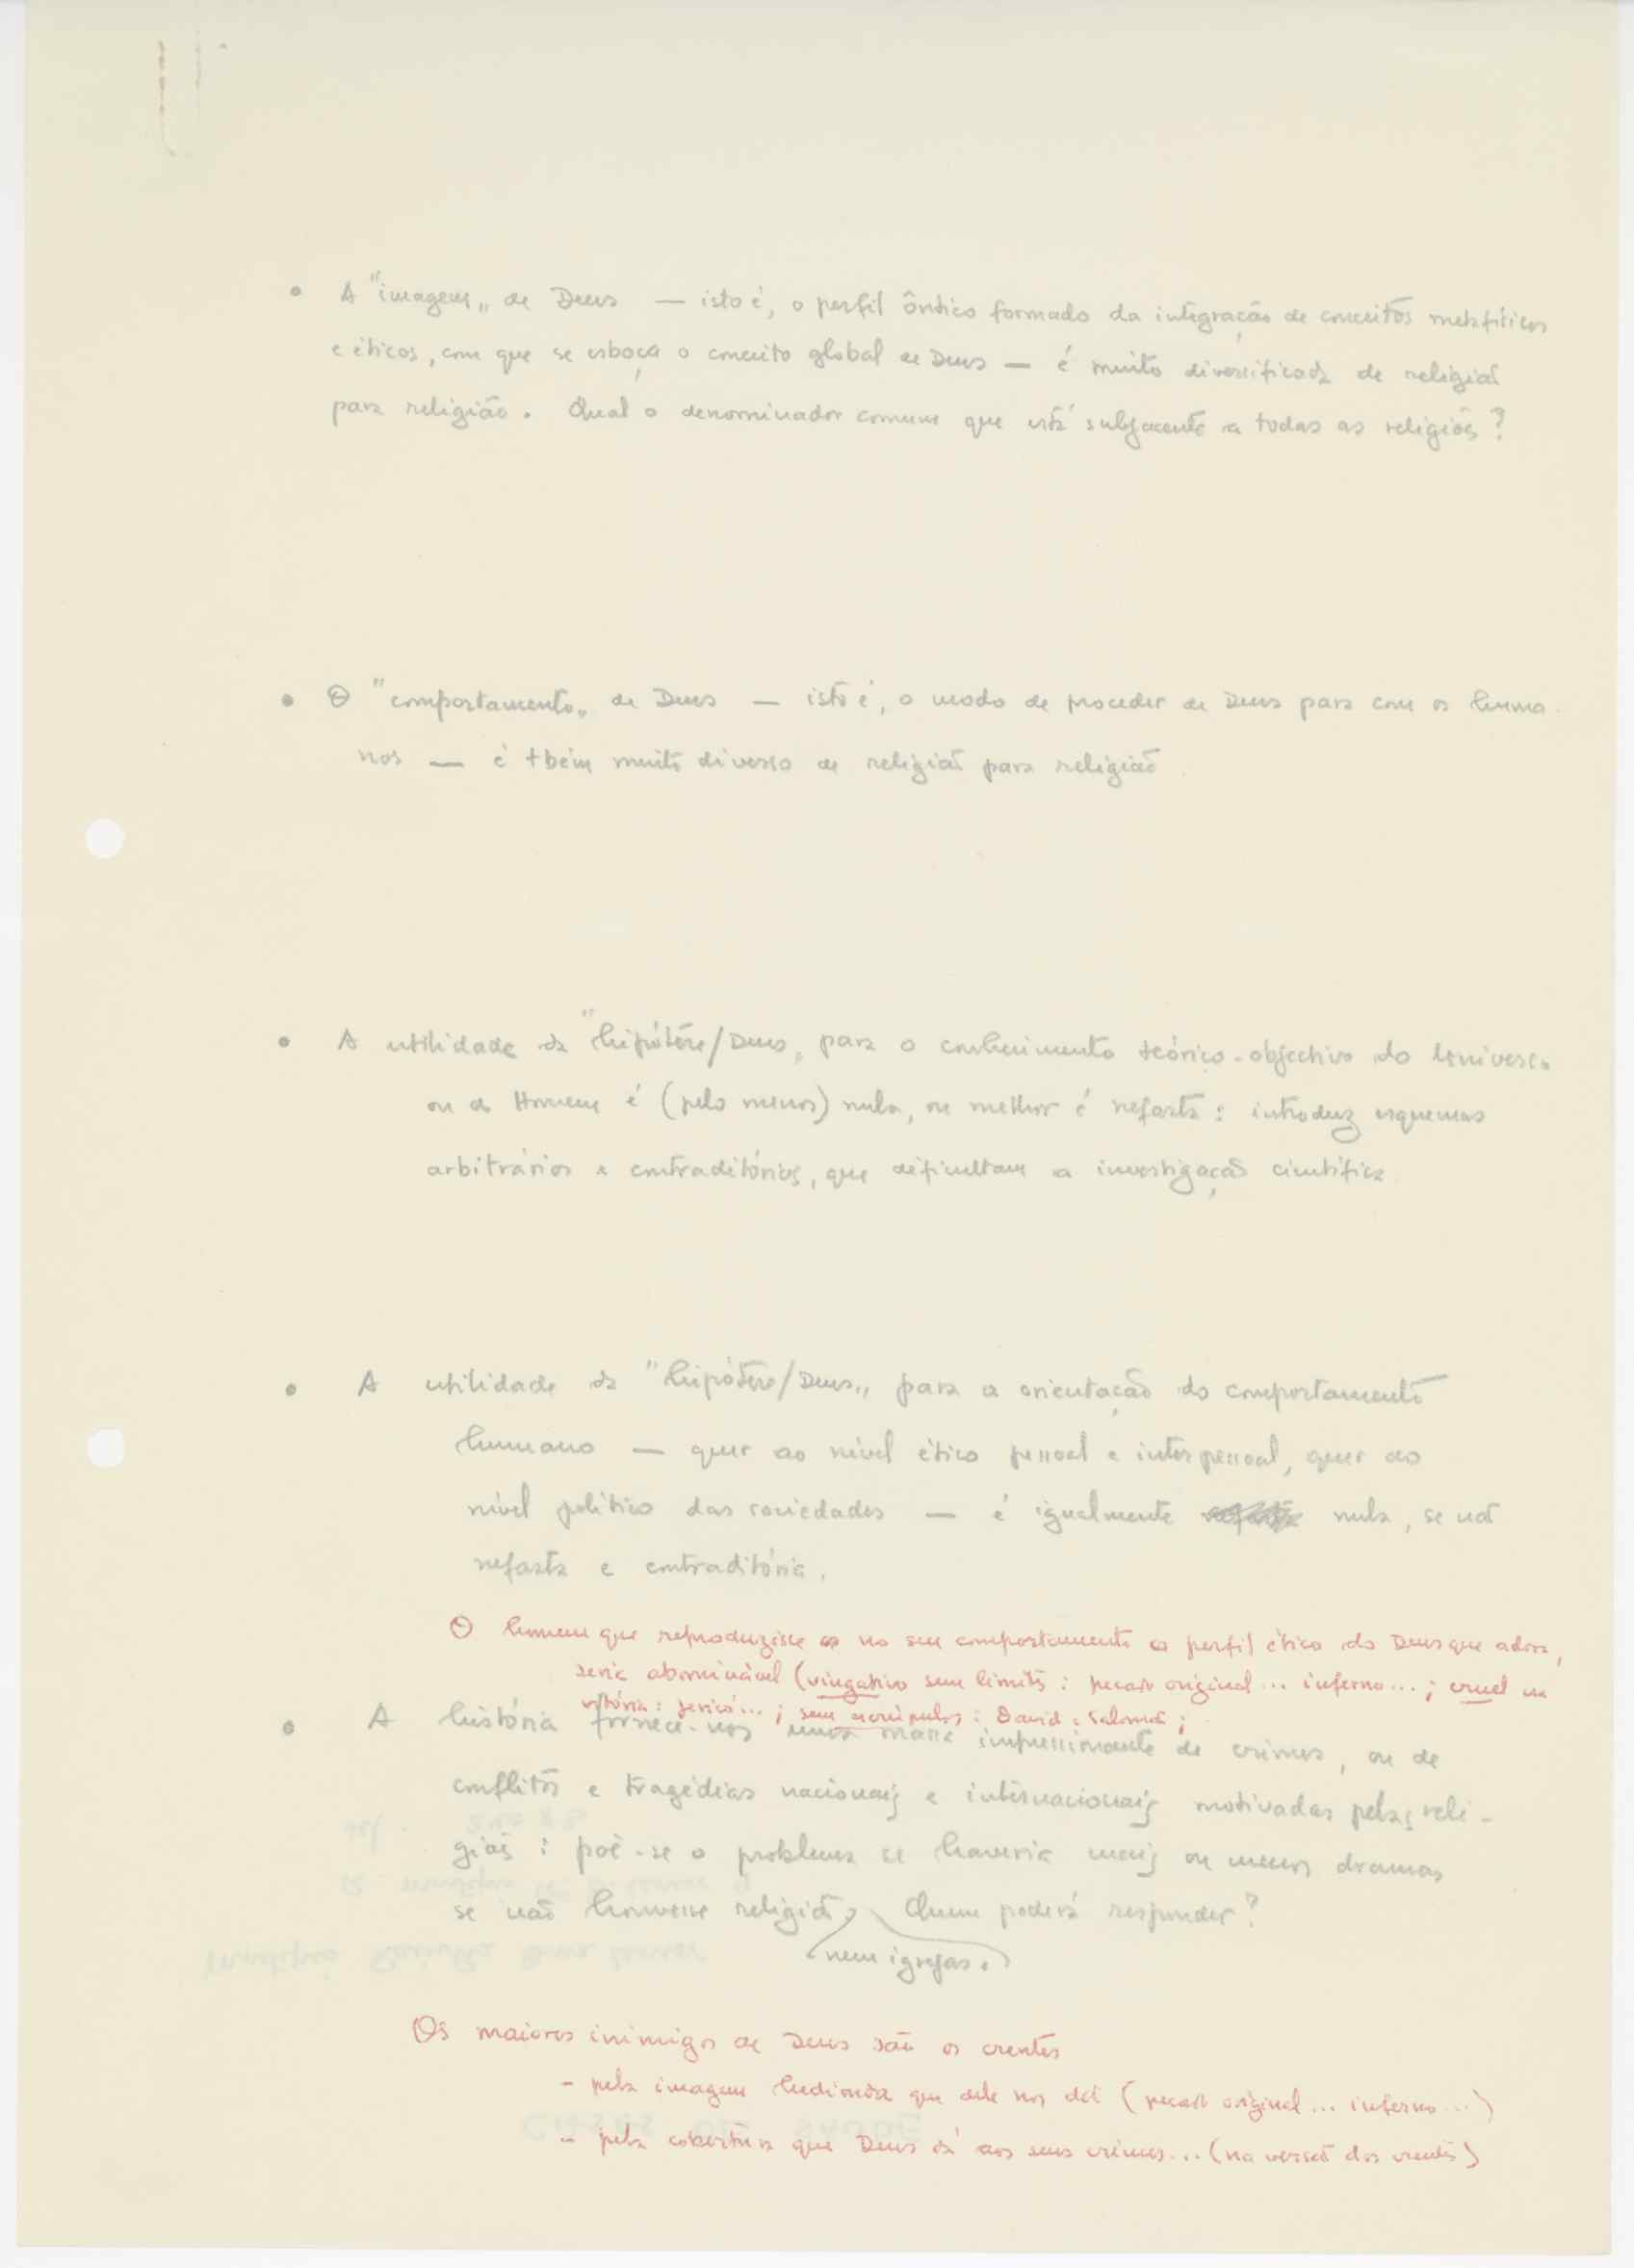 • A "imagem" de Deus — isto é, o perfil ôntico formado da integração de conceitos metafísicos
e éticos, com que se esboça o conceito global de Deus — é muito diversificada de religião
para religião. Qual o denominador comum que está subjacente a todas as religiões?
• O "comportamento" de Deus — isto é, o modo de proceder de Deus para com os huma-
nos — é tbém muito diverso de religião para religião
• A utilidade da "hipótese/Deus" para o conhecimento teórico-objectivo do Universo
ou do Homem é (pelo menos) nula, ou melhor é nefasta: introduz esquemas
arbitrários e contraditórios, que dificultam a investigação científica
• A utilidade da "hipótese/Deus" para a orientação do comportamento
humano — quer ao nível ético pessoal e interpessoal, quer ao
nível político das sociedades — é igualmente nula, se não
nefasta e contraditória.
O homem que reproduzisse no seu comportamento o perfil ético do Deus que adora,
seria abominável (vingativo sem limites: pecado original... inferno...; cruel na
vitória: Jericó...; sem escrúpulos: David e Salomão;
• A história fornece-nos uma massa impressionante de crimes, ou de
conflitos e tragédias nacionais e internacionais motivadas pelas reli-
giões: põe-se o problema se haveria mais ou menos dramas
se não houvesse religiões Quem poderá responder?
nem igrejas.
Os maiores inimigos de Deus são os crentes
- pela imagem hedionda que dele nos dão (pecado original... inferno...)
- pela cobertura que Deus dá aos seus crimes... (na versão dos crentes)